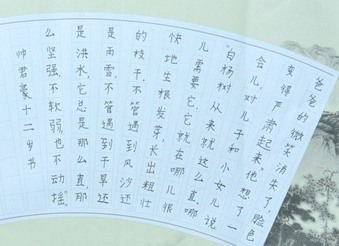 爸爸的微笑消失了，脸色
变得严肃起来。他想了一
会儿，对儿子和小女儿说
“白杨树从来就这么直。哪
儿需要它，它就在哪儿很
快地生根发芽，长出粗壮
的枝干。不管遇到风沙还
是雨雪，不管遇到干旱还
是洪水，它总是那么直，那
么坚强，不软弱，也不动摇。”
帅君豪十二岁书